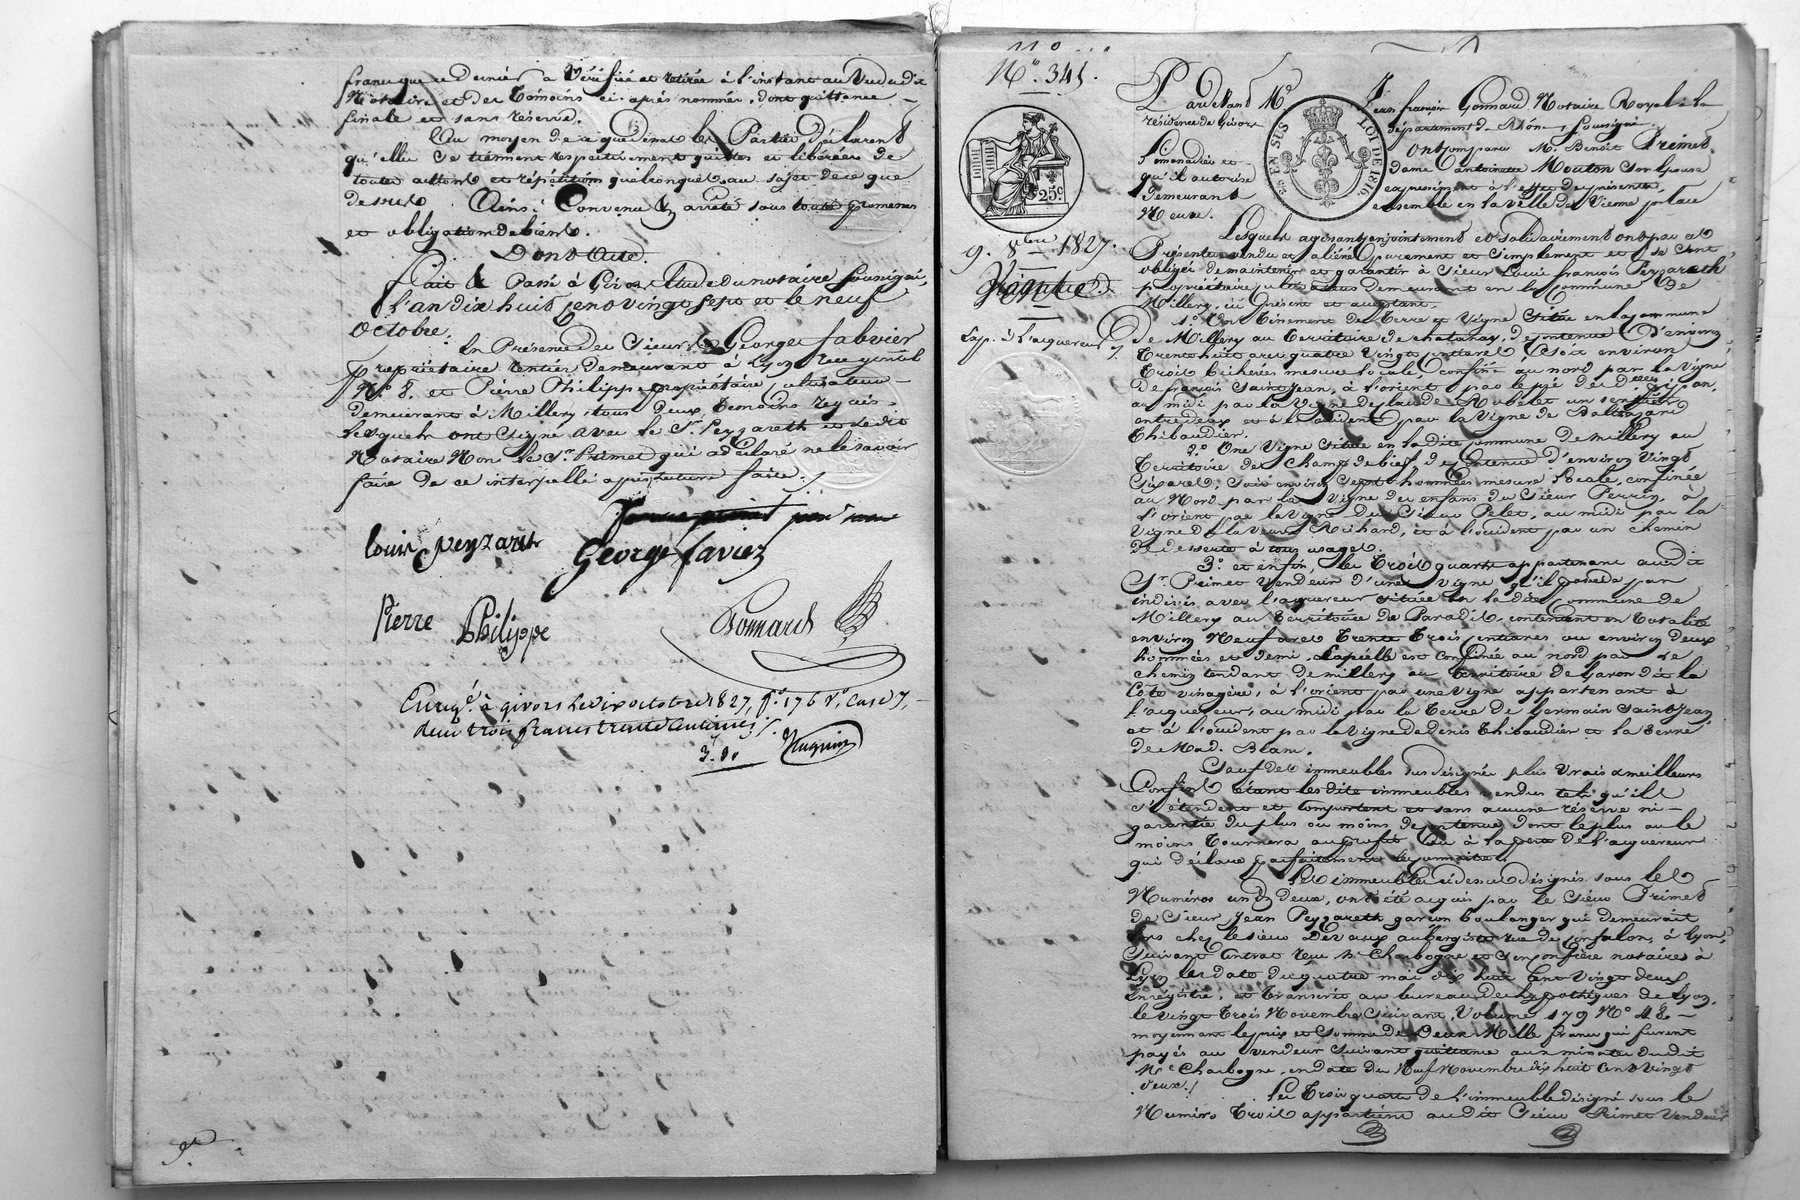 francs que ce dernier a vérifiée et retirée à l'instant au vu du dit
Notaire et des témoins ci-après nommés, dont quittance
finale et sans réserve.
Au moyen de ce que dessus les Parties déclarent
qu'elles se tiennent respectivement quittes et libérées de
toutes actions et répétitions quelconques au sujet de ce que
dessus. Ainsi Convenu & arrêté sous toutes promesses
et obligations de biens.
Dont Acte.
Fait & Passé à Givors, Etude du notaire soussigné,
l'an dix huit cent vingt sept et le neuf
Octobre.
En Présence des Sieurs Georges fabvier
Propriétaire rentier demeurant à Lyon rue
N°. 8. et Pierre Philippe propriétaire cultivateur
demeurant à Millery, tous deux témoins requis
lesquels ont signé avec le Sr. Peyzareth et ledit
Notaire Non le Sr. Primet qui a déclaré ne le savoir
faire de ce interpellé après lecture faite.
louis peyzaret
George favier
Pierre Philippe
Gonnard
Enreg.é à givors le dix octobre 1827, f.° 176 v.° Case 7,
deux trois francs trente centimes.
N.° 341.
25 EN SUS
LOI DE 1816
25c
9. 8bre 1827.
Exp. à l'acquereur
Pardevant Me. Jean françois Gonnard Notaire Royal à la
résidence de Givors département du Rhône, soussigné.
Ont comparu Mr. Benoit Primet,
et dame antoinette Mouton son épouse
qu'il autorise expressément à l'effet des présentes,
demeurant ensemble en la ville de Vienne place
Neuve.
Lesquels agissant conjointement et solidairement ont par ces
Présentes vendu et aliéné purement et simplement et se sont
obligés de maintenir et garantir à Sieur Louis françois Peyzareth
propriétaire cultivateur demeurant en la Commune de
Millery, ici présent et acceptant,
1.° Un Tènement de Terre et Vigne situé en la commune
de Millery au territoire de chatanay, de contenue d'environ
Trente huit ares quatre vingt centiares, soit environ
trois bicherées mesure locale, Confiné au nord par la vigne
de françois Saint Jean, à l'orient par le pré des delles
au midi par la vigne de Claude Robelet un sentier
entre deux et à l'occident par la vigne de Balthazard
Thibaudier.
2.° Une vigne située en la dite commune de Millery au
Territoire de Champ debief, de Contenue d'environ Vingt
Six ares, soit environ Sept hommées mesure locale, confinée
au Nord par la vigne des enfans du Sieur Perrin, à
l'orient par la vigne du Sieur Pelet, au midi par la
Vigne de la veuve Richard, et à l'occident par un chemin
de desserte à tous usages.
3.° et enfin, les Trois quarts appartenant audit
Sr. Primet Vendeur d'une vigne qu'il possède par
indivis avec l'acquereur située en la dite commune de
Millery au Territoire du Paradis, contenant en totalité
environ Neuf ares trente trois centiares ou environ deux
hommées et demi. Laquelle est confinée au nord par le
chemin tendant de millery au Territoire de Garon dit la
Côte vinagère, à l'orient par une vigne appartenant à
l'acquereur, au midi par la Terre de Germain Saint Jean,
et à l'occident par la Vigne de denis Thibaudier et la terre
de Mad. Blanc.
Sauf des immeubles sus désignés plus vrais & meilleurs
Confins étant les dits immeubles vendus tels qu'ils
s'étendent et comportent et sans aucune réserve ni
garantie du plus ou moins de contenue dont le plus ou le
moins tournera au profit ou à la perte de l'acquereur
qui déclare parfaitement les connaitre.
Les immeubles ci-dessus désignés sous les
Numéros un & deux, ont été acquis par le Sieur Primet
de Sieur Jean Peyzareth garçon boulanger qui demeurait
lors chez le sieur Devaux aubergiste rue du gonfalon, à Lyon,
Suivant Contrat reçu Me. Charbogne et son confrère notaires à
Lyon les date du quatre mai dix huit Cent Vingt deux
Enregistré, et transcrit au bureau des hypothèques de Lyon,
le vingt trois Novembre suivant, Volume 179 N° 48.
moyennant le prix et Somme de Deux Mille francs qui furent
payés au vendeur suivant quittance aux minutes dudit
Me. Charbogne, en date du Neuf Novembre dix huit Cent Vingt
deux.
Les Trois quarts de l'immeuble désigné sous le
Numéro Trois appartient audit Sieur Primet Vendeur